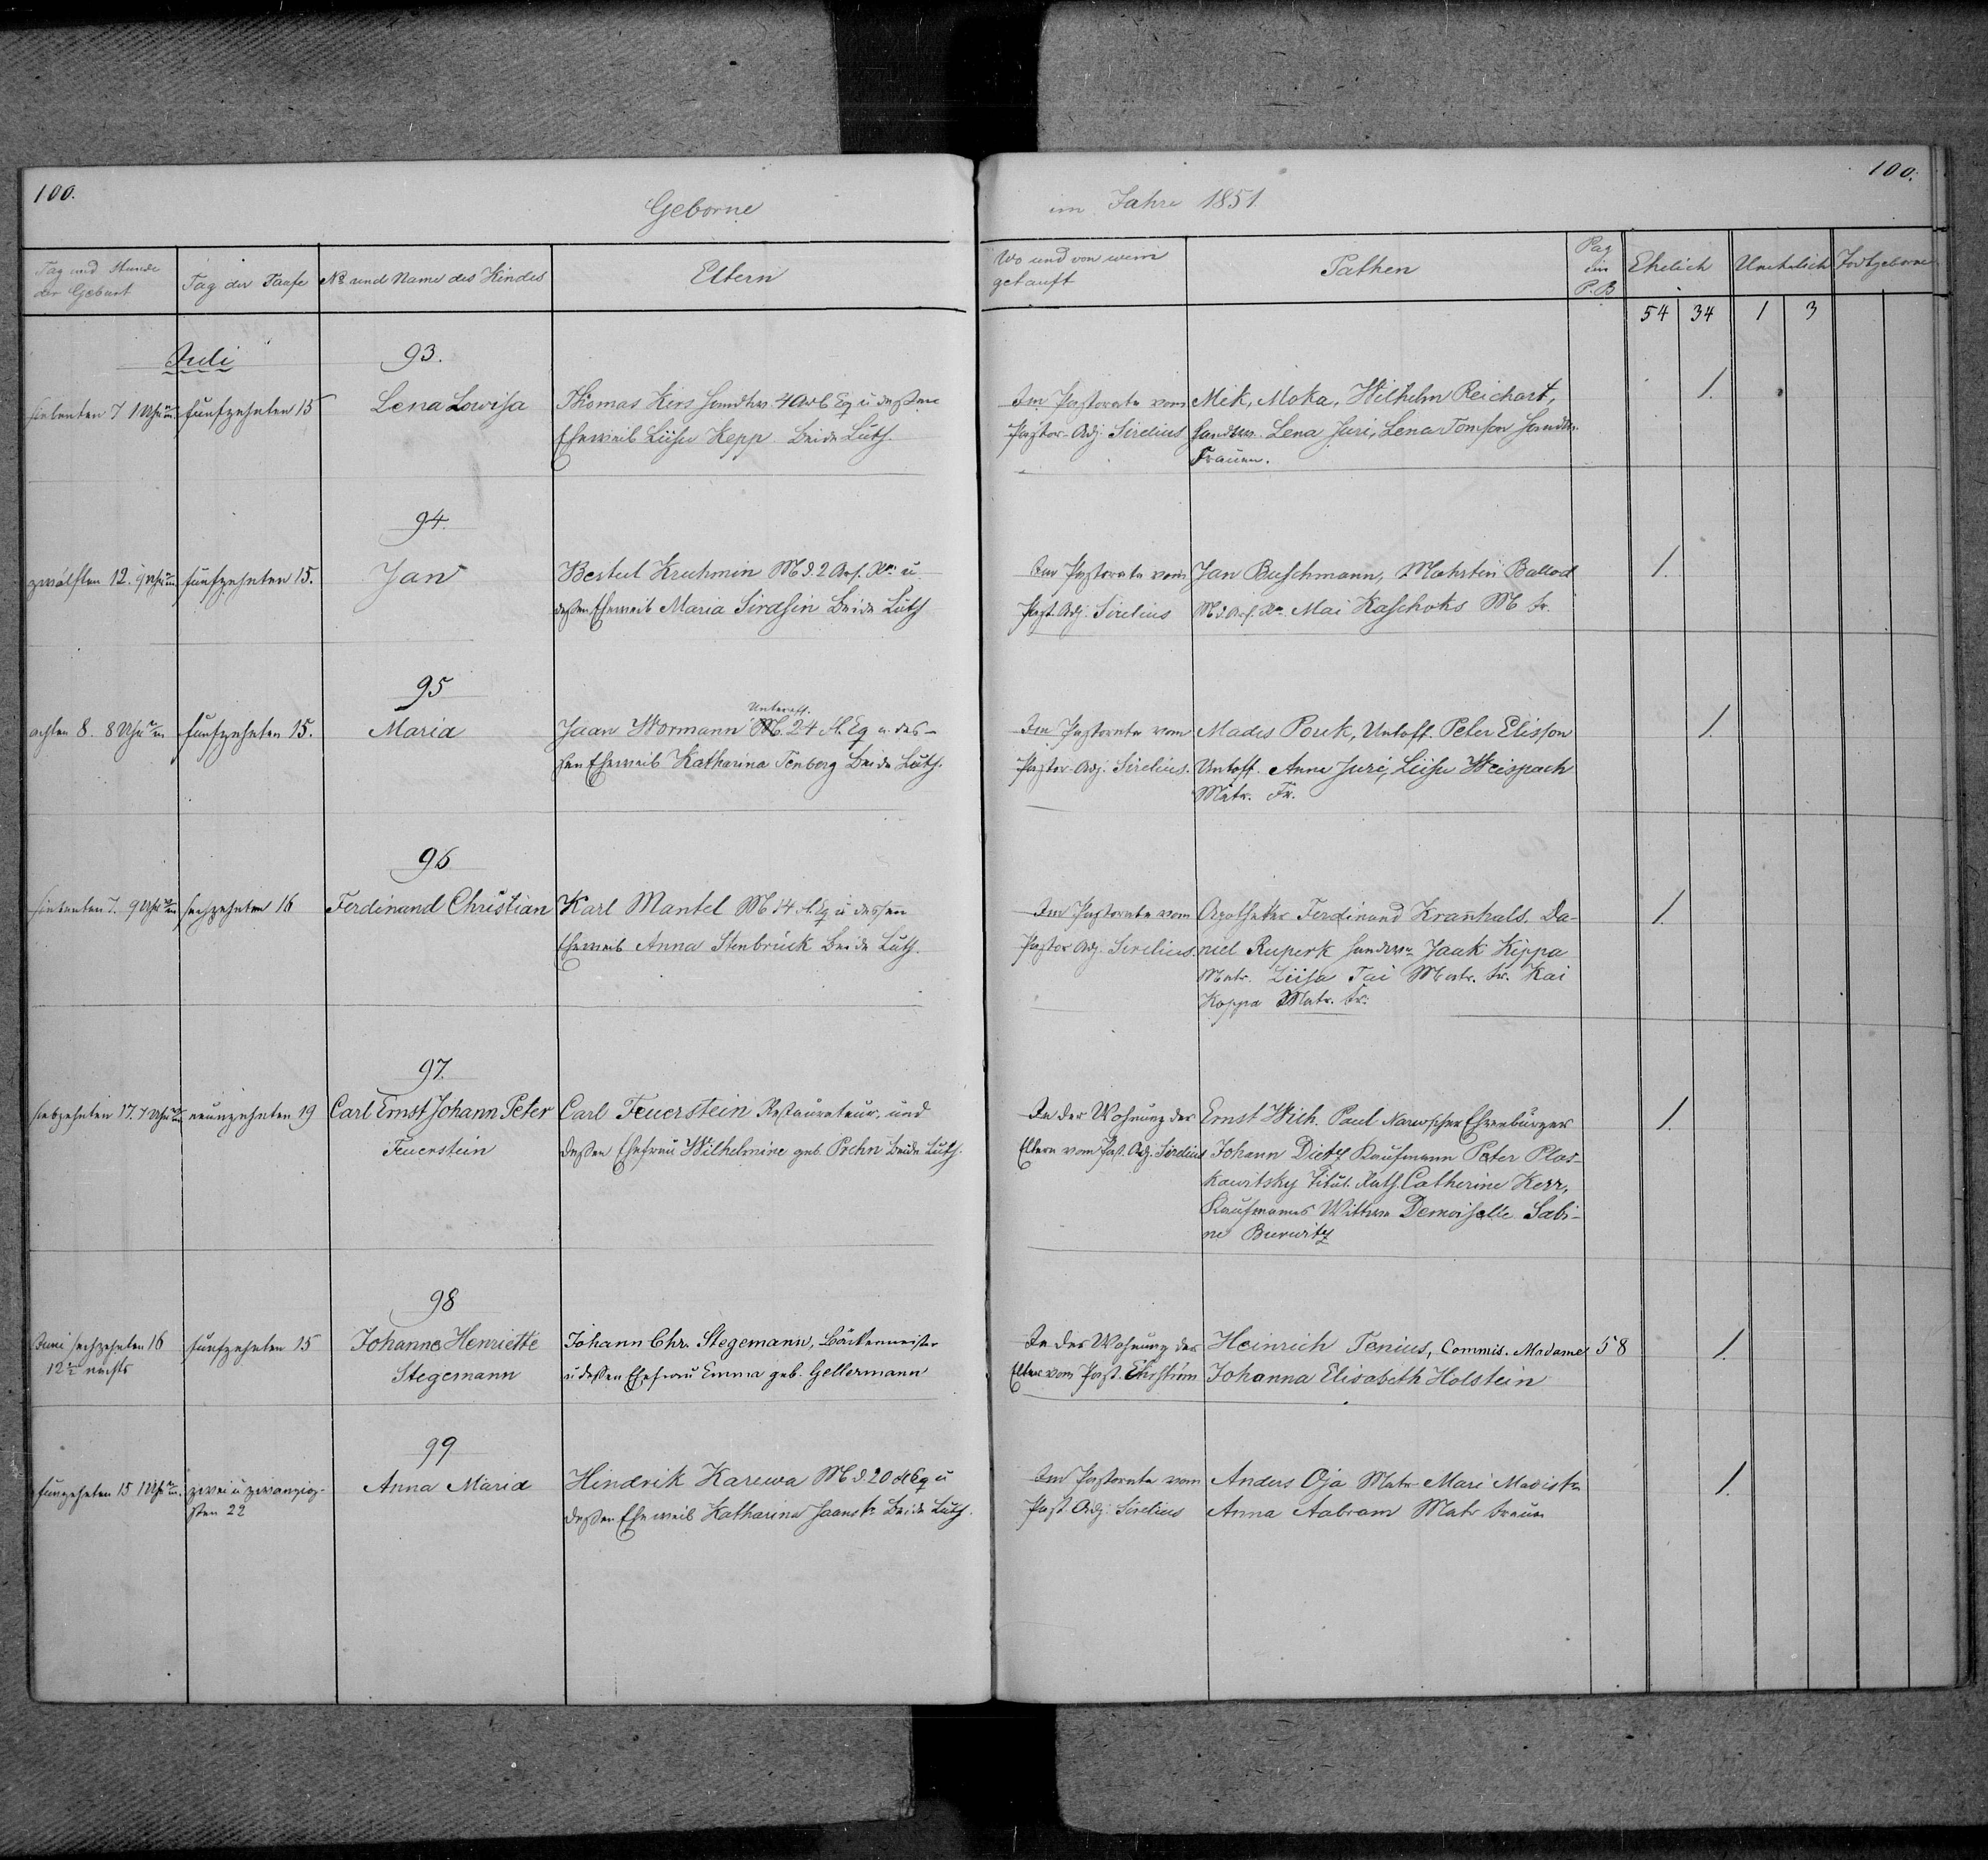 100.
Geborne
im Jahre 1851.
100.
Tag und Stunde der Geburt
Tag der Taufe
No und Name des Kindes
Eltern
Wo und von wem getauft
Pathen
Pag im P.B
Ehelich
Unehelich
Todtgeborne
54 34 1 3
Juli
93.
siebenten 7 1 Uhr
fünfzehnten 15
Lena Lowisa
Thomas Kers Handw. 4 Arb Eq u dessen
Eheweib Liisu Kepp. Beide Luth.
Im Pastorate vom
Pastor-Adj. Sirelius
Mik, Moka, Wilhelm Reichart,
Handwr. Lena Juri, Lena Tomson Handw.
Frauen.
1.
94.
zwölften 12. 9 Uhr
fünfzehnten 15.
Jan
Bertul Kruhmin M d. 2 u
dessen Eheweib Maria Sirdsin Beide Luth
Im Pastorate vom
Past. Adj. Sirelius
Jan Buschmann, Mahrtin Ballod
Mai Kaschoks M fr.
1.
95
achten 8. 8 Uhr
fünfzehnten 15.
Maria
Unteroff.
Jaan Wormann M. 24 Fl. Eq u. des-
sen Eheweib Katharina Tenberg Beide Luth.
Im Pastorate vom
Pastor-Adj. Sirelius.
Madis Pouk, Untoff. Peter Elisson
Untoff. Anna Juri, Liisu Weispach
Matr. Fr.
1.
96
siebenten 7. 9 Uhr
sechzehnten 16
Ferdinand Christian
Karl Mantel M 14 Fl. Eq u dessen
Eheweib Anna Stenbrück Beide Luth.
Im Pastorate vom
Pastor Adj. Sirelius.
Apotheker Ferdinand Kranhals. Da-
niel Ruperk Handwr Jaak Kippa
Matr. Liisa Tai Matr. fr. Kai
Koppa Matr. fr.
1.
97.
siebzehnten 17. 7 Uhr
neunzehnten 19
Carl Ernst Johann Peter
Feuerstein
Carl Feuerstein Restaurateur, und
dessen Ehefrau Wilhelmine geb. Pochn Beide Luth.
In der Wohnung der
Eltern vom Past. Adj. Sirelius
Ernst Wich. Paul Narwscher Ehrenbürger
Johann Dietz Kaufmann Peter Plos-
kawitsky Titul. Rath. Catherine Kerr,
Kaufmanns Wittwe Demoiselle Sabi-
ne Burwitz
1.
98
Juni sechzehnten 16
12 nachts
fünfzehnten 15
Johanne Henriette
Stegemann
Johann Chr. Stegemann, Bäckermeister
u dessen Ehefrau Emma geb. Gellermann
In der Wohnung der
Eltern vom Past. Ehrström
Heinrich Tenius, Commis. Madame
Johanna Elisabeth Holstein
58
1.
99
funfzehnten 15 1 Uhr
zwei u zwanzig-
sten 22
Anna Maria
Hindrik Karewa M d. 20 Fl Eq u
dessen Eheweib Katharina Jaans tr Beide Luth.
Im Pastorate vom
Past. Adj. Sirelius
Anders Oja Matr. Mari Madis tr
Anna Aabram Matr frauen
1.